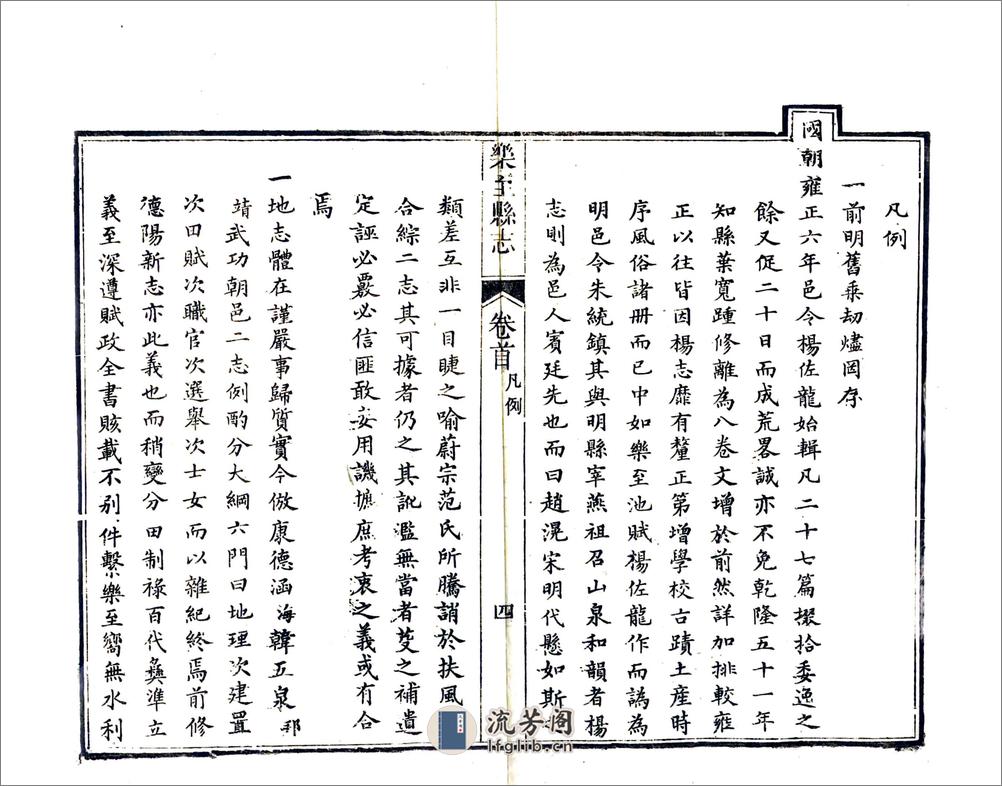 凡例
一前明舊乘劫燼罔存
國朝雍正六年邑令楊佐龍始輯凡二十七篇掇拾委逸之
餘又促二十日而成荒畧誠亦不免乾隆五十一年
知縣葉寬踵修離為八卷文增於前然詳加排較雍
正以往皆因楊志靡有釐正第增學校古蹟土産時
序風俗諸册而已中如樂至池賦楊佐龍作而譌為
明邑令朱統鎮其與明縣宰燕祖召山泉和韻者楊
志則為邑人賓廷先也而曰趙滉宋明代懸如斯
樂至縣志
卷首
凡例
四
類差互非一目睫之喻蔚宗范氏所騰誚於扶風
合綜二志其可據者仍之其訛濫無當者芟之補遺
定誣必覈必信匪敢妄用譏摭庶考衷之義或有合
焉
一地志體在謹嚴事歸質實今倣康德涵海韓五泉邦
靖武功朝邑二志例酌分大綱六門曰地理次建置
次田賦次職官次選舉次士女而以雜紀終焉前修
德陽新志亦此義也而稍變分田制祿百代彝準立
義至深遵賦政全書賅載不别件繫樂至嚮無水利
流芳阁
lfglib.cn